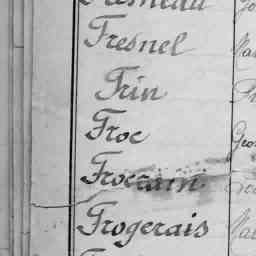 Fresnel
Frin
Froc
Frocrain
Frogerais